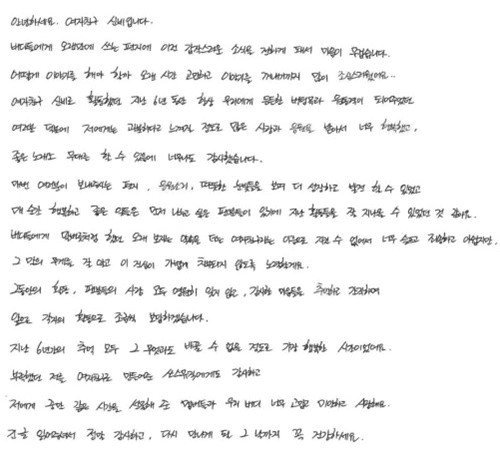 안녕하세요. 여자친구 신비입니다.
버디들에게 오랜만에 쓰는 편지에 이런 갑작스러운 소식을 전하게 돼서 마음이 무겁습니다.
어떻게 이야기를 해야 할까 오랜 시간 고민하고 이야기를 꺼내기까지 많이 조심스러웠어요..
여자친구 신비로 활동했던 지난 6년 동안 항상 우리에게 든든한 버팀목과 원동력이 되어주었던
여러분 덕분에 저에게는 과분하다고 느껴질 정도로 많은 사랑과 응원을 받아서 너무 행복했고,
좋은 노래와 무대를 할 수 있음에 너무나도 감사했습니다.
매번 여러분이 보내주시는 편지, 응원소리, 따뜻한 눈빛들을 보며 더 성장하고 발전 할 수 있었고
매 순간 행복하고 좋은 것들은 먼저 나누고 싶은 팬분들이 있기에 지난 활동들을 잘 지나올 수 있었던 것 같아요.
버디들에게 말버릇처럼 했던 오래 보자는 말을 더는 여자친구라는 이름으로 지킬 수 없어서 너무 슬프고 죄송하고 아쉽지만,
그 말의 무게를 잘 알고 이 진심이 가볍게 되지 않도록 노력할게요.
그동안의 활동, 팬분들의 시간 모두 영원히 잊지 않고, 감사한 마음들을 추억하고 간직하며
앞으로 각자의 활동으로 조금씩 보답하겠습니다.
지난 6년간의 추억 모두 그 무엇과도 바꿀 수 없을 정도로 가장 행복한 시간이었어요.
부족했던 저를 여자친구로 만들어준 쏘스뮤직에게도 감사하고
저에게 공만 같은 시간을 선물해 준 멤버들과 우리 버디 너무 고맙고 미안하고 사랑해요.
긴글 읽어주셔서 정말 감사하고, 다시 만나게 될 그 날까지 꼭 건강하세요.